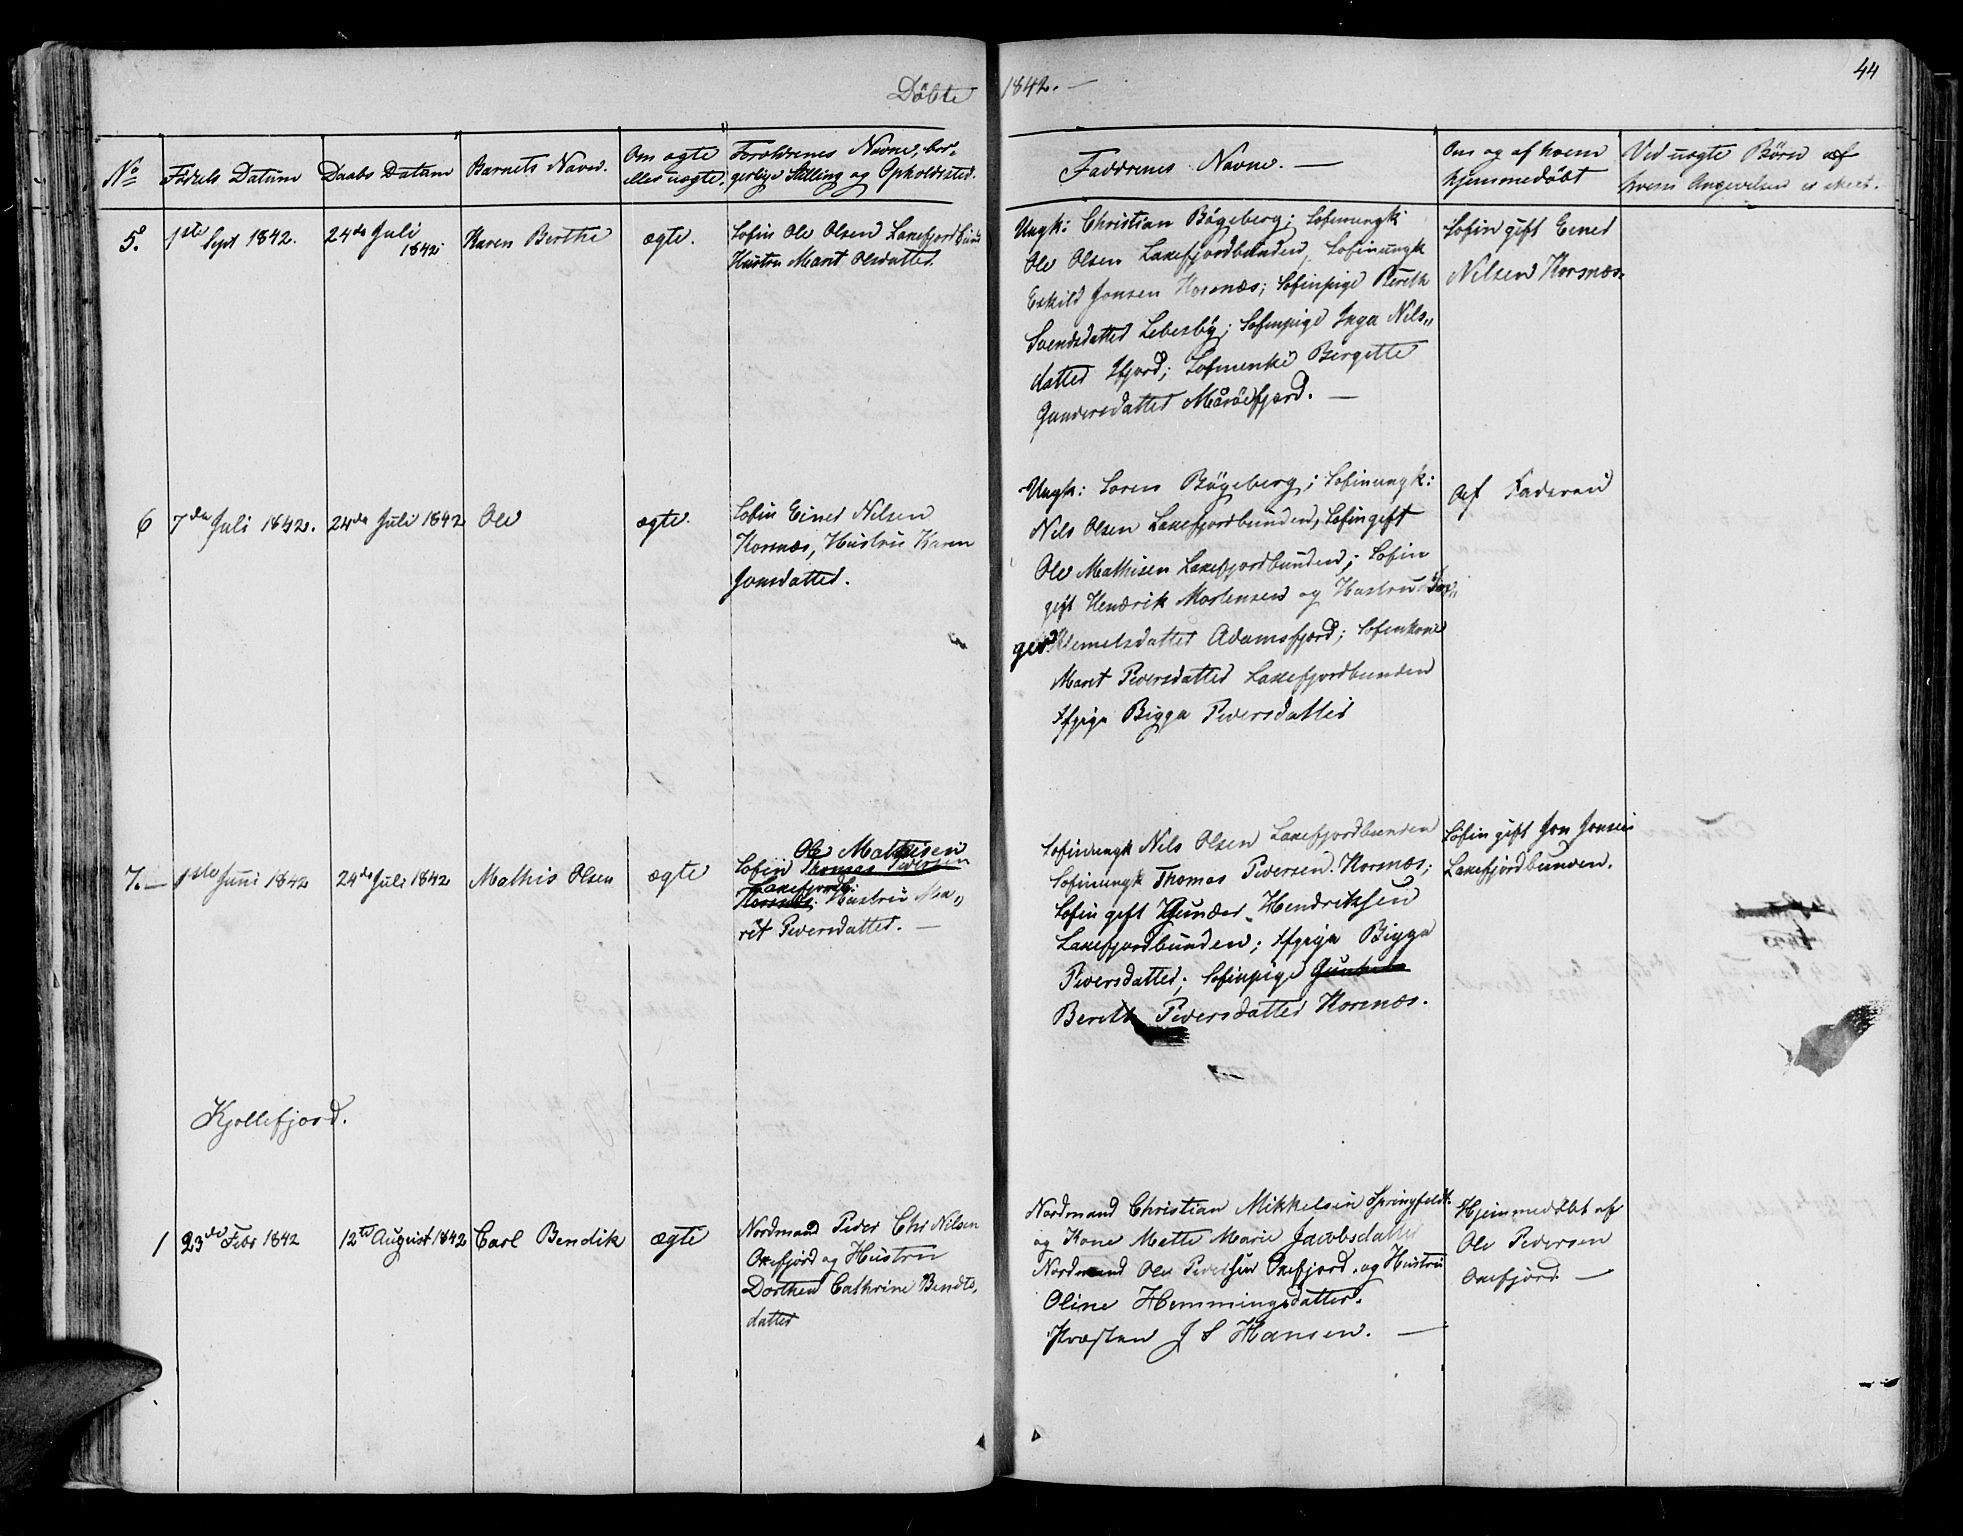 Döbte 1842. —
44
No
Födsels Datum
Daabs Datum
Barnets Navn.
Om ægte
eller uægte.
Forældrenes Navne, bor-
gerlige Stilling og Opholdssted.
Faddrenes Navne. —
Om og af hvem
hjemmedöbt
Ved uægte Börn af
hvem Angivelsen er skeet.
5.
1ste Sept 1842.
24de Juli
1842
Karen Berthe
ægte.
Söfin Ole Olsen Laxefjordbund
Hustru Marit Olsdatter
Ungk: Christian Bögeberg; Söfinungk
Ole Olsen Laxefjordbunden, Söfinungk
Eskild Jonsen Korsnæs; Söfinpige Bereth
Svendsdatter Lebesby; Söfinpige Inga Nils„
datter Ifjord; Söfinenke Bergette
Gundersdatter Mårøefjord. —
Söfin gift Einer
Nilsen Korsnæs.
6
7de Juli 1842.
24de Juli 1842
Ole
ægte.
Söfin Einer Nilsen
Korsnæs, Hustru Karen
Jonsdatter.
Ungk: Sören Bögeberg; Söfinungk:
Nils Olsen Laxefjordbunden, Söfin gift
Ole Mathisen Laxefjordbunden; Söfin
gift Hendrik Mortensen og Hustru
Klemetsdatter Adamsfjord; Söfinkone
Maret Pedersdatter Laxefjordbunden
Bigga Pedersdatter
Af Faderen
7. —
1ste Juni 1842
24de Juli 1842
Mathis Olsen
ægte
Ole Mathisen
Söfin Thomas Pedersen
Laxefjordb:
Korsnæs. Hustru Ma„
rit Pedersdatter. —
Söfinungk Nils Olsen Laxefjordbunden
Söfinungk Thomas Pedersen Korsnæs;
Söfin gift Gunder Hendriksen
Laxefjordbunden; Bigga
Pedersdatter; Söfinpige
Bereth Pedersdatter Korsnæs.
Söfin gift Jon Jonsen
Laxefjordbunden.
Kjollefjord.
1
23de Febr 1842
12te August 1842
Carl Bendik
ægte
Nordmand Peder Chr Nilsen
Oxefjord og Hustru
Dorthea Cathrine Bendts.
datter
Nordmand Christian Mikkelsen Springfeldt.
og Kone Mette Marie Jacobsdatter
Nordmand Ole Pedersen Oxefjord. og Hustru
Oline Hemmingsdatter.
Præsten J S Hansen. —
Hjemmedöbt af
Ole Pedersen
Oxefjord. —